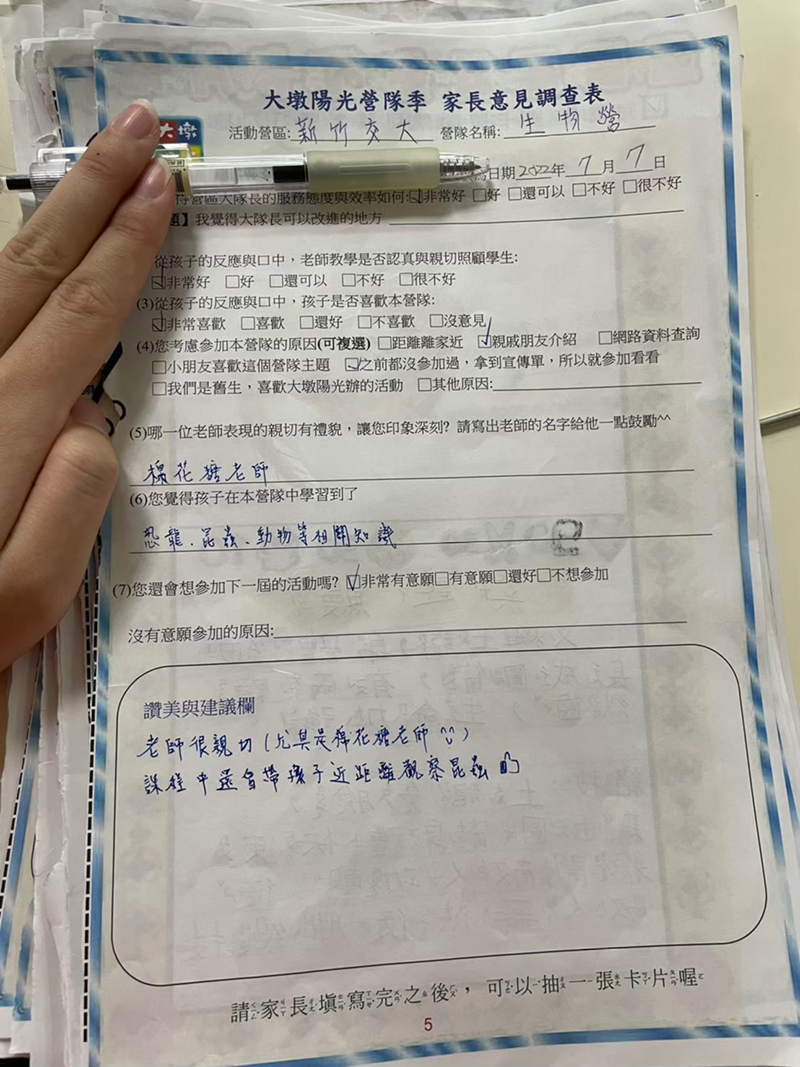 大墩陽光營隊季 家長意見調查表
大墩
活動營區:新竹交大 營隊名稱:生物營
日期2022年7月7日
營區大隊長的服務態度與效率如何:☑非常好 □好 □還可以 □不好 □很不好
題】我覺得大隊長可以改進的地方
從孩子的反應與口中,老師教學是否認真與親切照顧學生:
☑非常好 □好 □還可以 □不好 □很不好
(3)從孩子的反應與口中,孩子是否喜歡本營隊:
☑非常喜歡 □喜歡 □還好 □不喜歡 □沒意見
(4)您考慮參加本營隊的原因(可複選) □距離離家近 ☑親戚朋友介紹 □網路資料查詢
□小朋友喜歡這個營隊主題 ☑之前都沒參加過,拿到宣傳單,所以就參加看看
□我們是舊生,喜歡大墩陽光辦的活動 □其他原因:
(5)哪一位老師表現的親切有禮貌,讓您印象深刻? 請寫出老師的名字給他一點鼓勵^^
棉花糖老師
(6)您覺得孩子在本營隊中學習到了
恐龍、昆蟲、動物等相關知識
(7)您還會想參加下一屆的活動嗎? ☑非常有意願□有意願□還好□不想參加
沒有意願參加的原因:
讚美與建議欄
老師很親切(尤其是棉花糖老師)
課程中還會帶孩子近距離觀察昆蟲
請家長填寫完之後,可以抽一張卡片喔
5